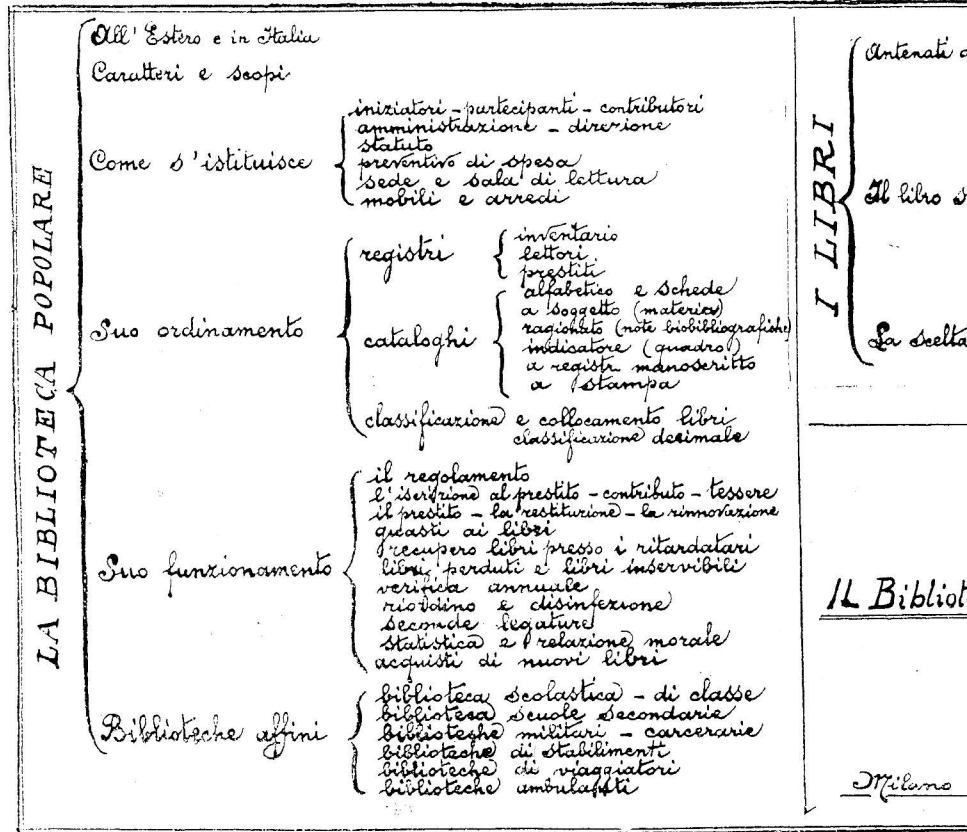 LA BIBLIOTECA POPOLARE
All' Estero e in Italia
Caratteri e scopi
Come s'istituisce
iniziatori - partecipanti - contributori
amministrazione - direzione
statuto
preventivo di spesa
sede e sala di lettura
mobili e arredi
Suo ordinamento
registri
inventario
lettori
prestiti
cataloghi
alfabetico e schede
a soggetto (materica)
ragionato (note biobibliografiche)
indicatore (quadro)
a registr. manoscritto
a stampa
classificazione e collocamento libri
classificazione decimale
Suo funzionamento
il regolamento
l'iscrizione al prestito - contributo - tessere
il prestito - la restituzione - la rinnovazione
guasti ai libri
recupero libri presso i ritardatari
libri perduti e libri inservibili
verifica annuale
riordino e disinfezione
seconde legature
statistica e relazione morale
acquisti di nuovi libri
Biblioteche affini
biblioteca scolastica - di classe
biblioteca scuole secondarie
biblioteche militari - carcerarie
biblioteche di stabilimenti
biblioteche di viaggiatori
biblioteche ambulanti
I LIBRI
Antenati d
Il libro s
La scelta
IL Bibliote
Milano